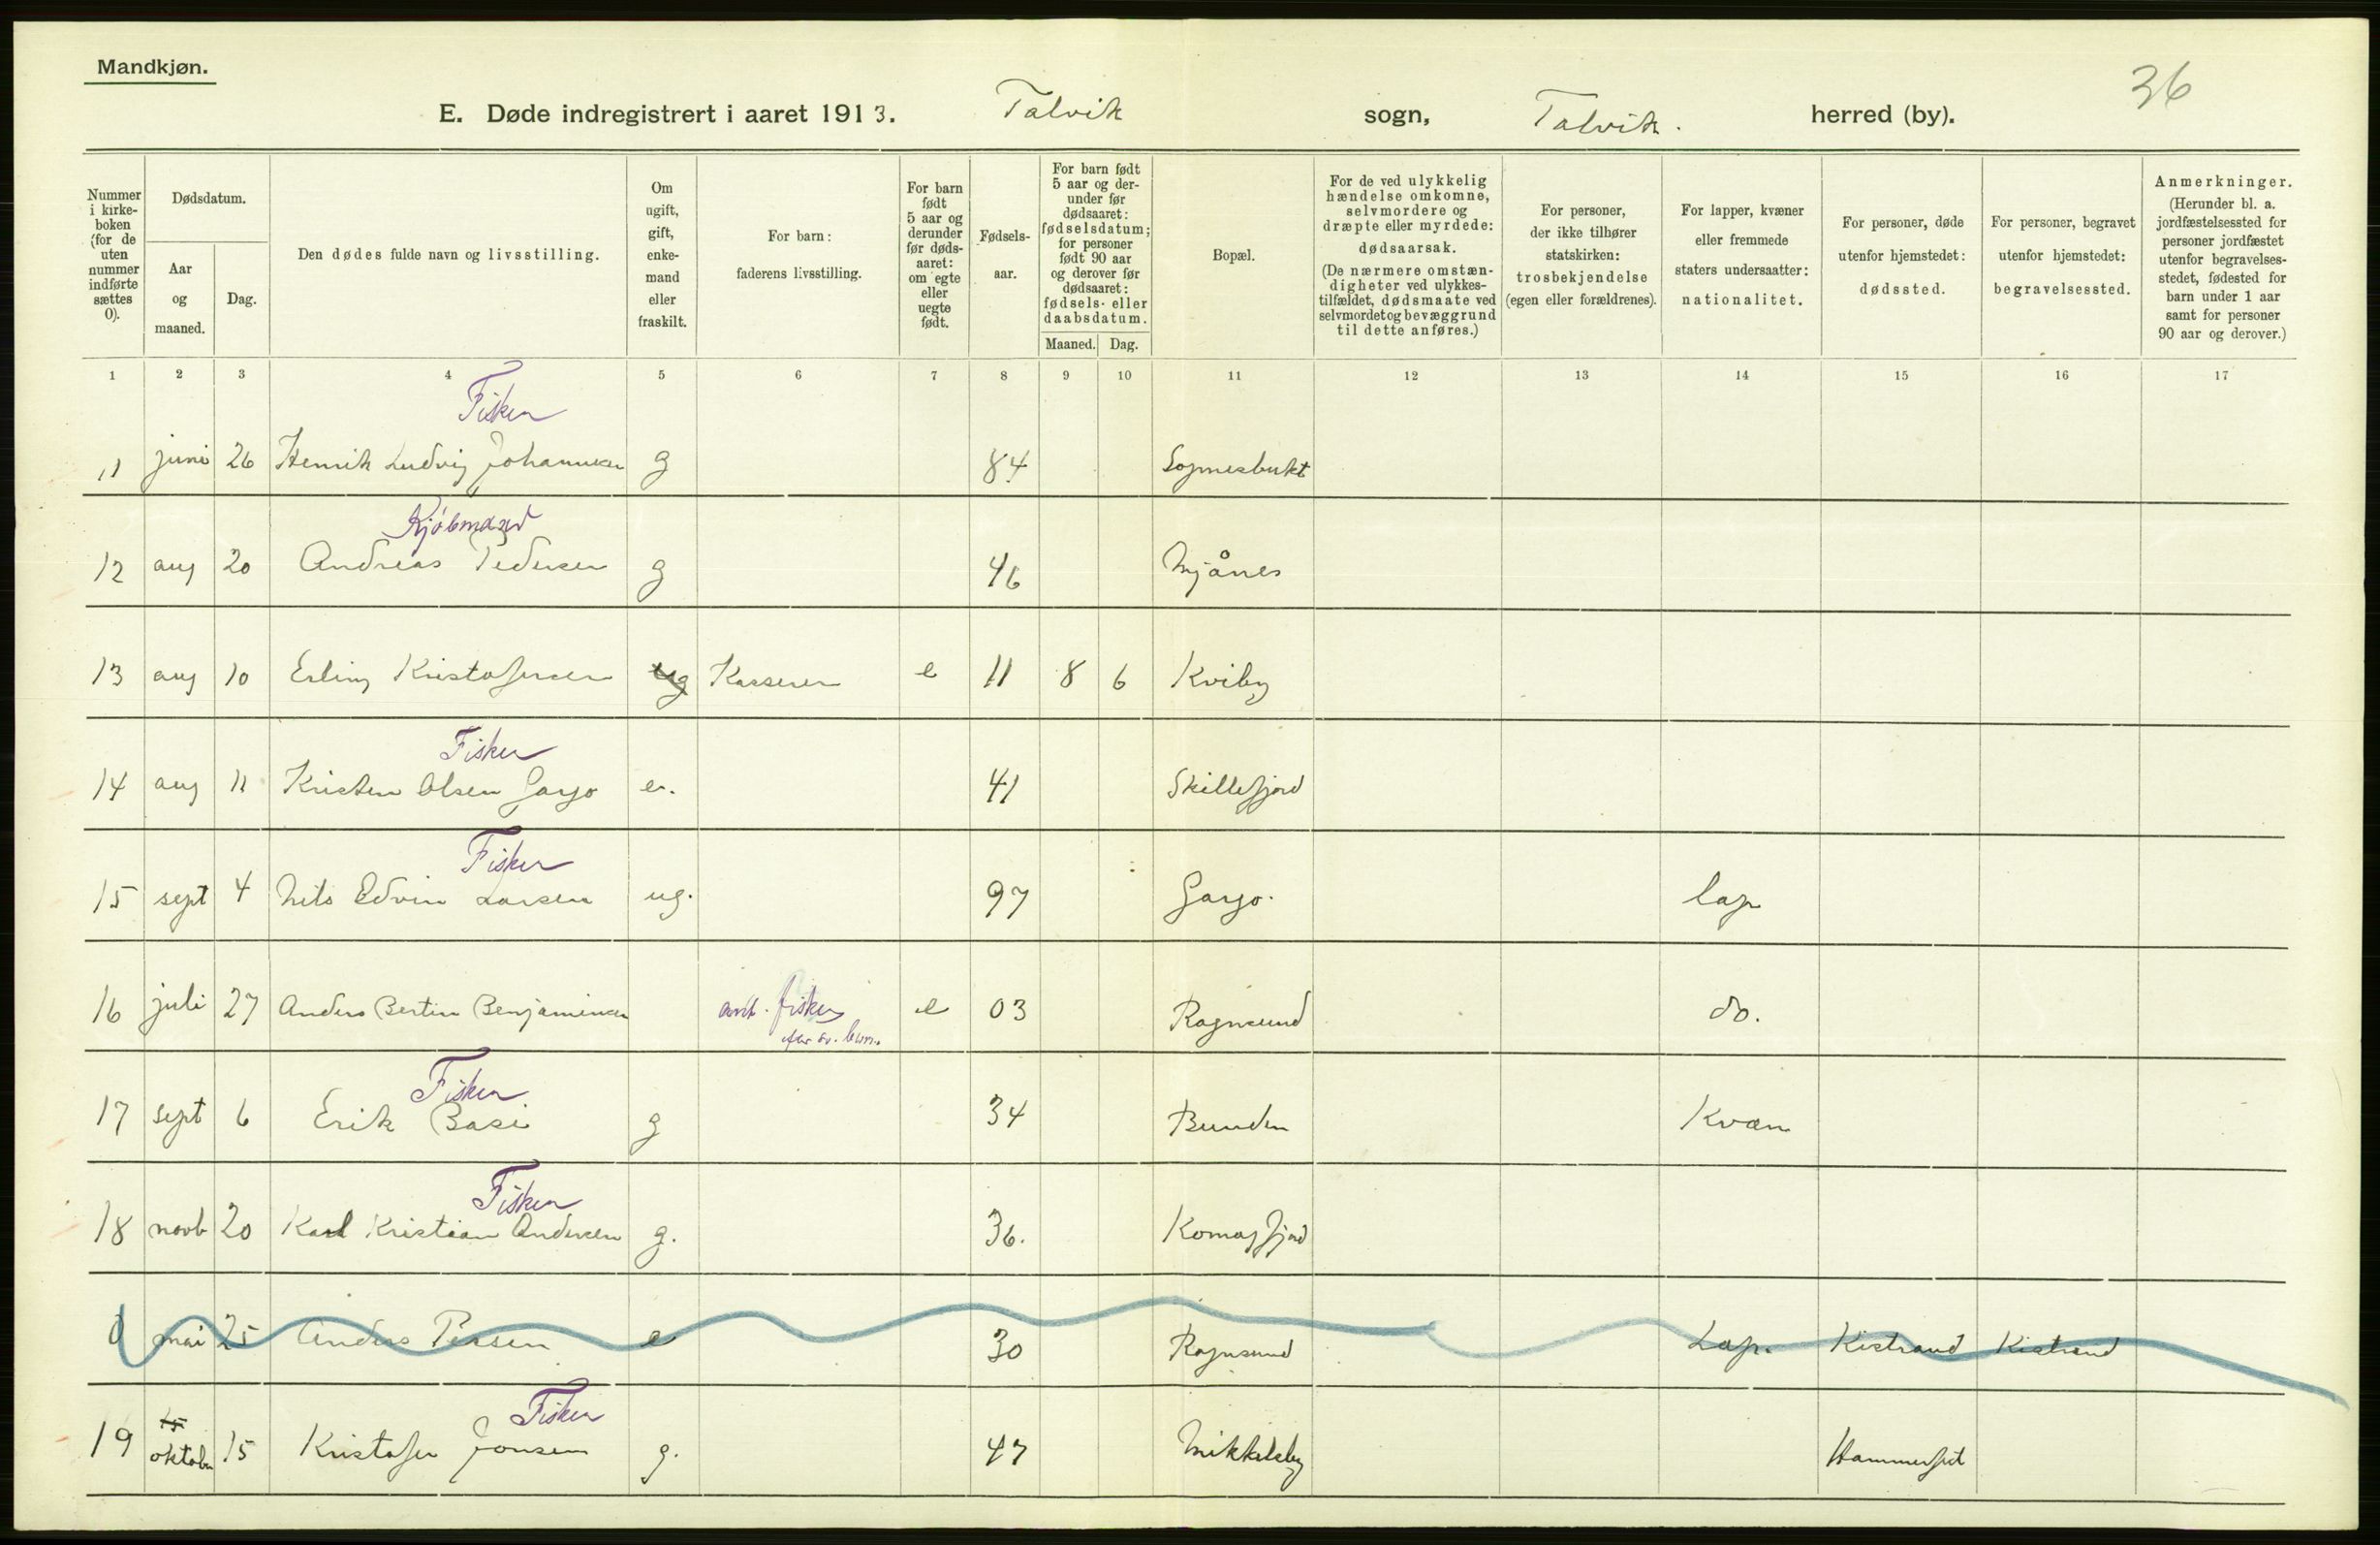 Mandkjøn.
36
E. Døde indregistrert i aaret 1913. Talvik sogn, Talvik. herred (by).
Nummer i kirke- boken (for de uten nummer indførte sættes 0).
Dødsdatum.
Aar og maaned.
Dag.
Den dødes fulde navn og livsstilling.
Om ugift, gift, enke- mand eller fraskilt.
For barn: faderens livsstilling.
For barn født 5 aar og derunder før døds- aaret: om egte eller uegte født.
Fødsels- aar.
For barn født 5 aar og der- under før dødsaaret: fødselsdatum; for personer født 90 aar og derover før dødsaaret: fødsels- eller daabsdatum.
Maaned. Dag.
Bopæl.
For de ved ulykkelig hændelse omkomne, selvmordere og dræpte eller myrdede: dødsaarsak. (De nærmere omstæn- digheter ved ulykkes- tilfældet, dødsmaate ved selvmordet og bevæggrund til dette anføres.)
For personer, der ikke tilhører statskirken: trosbekjendelse (egen eller forældrenes).
For lapper, kvæner eller fremmede staters undersaatter: nationalitet.
For personer, døde utenfor hjemstedet: dødssted.
For personer, begravet utenfor hjemstedet: begravelsessted.
Anmerkninger. (Herunder bl. a. jordfæstelsessted for personer jordfæstet utenfor begravelses- stedet, fødested for barn under 1 aar samt for personer 90 aar og derover.)
1 2 3 4 5 6 7 8 9 10 11 12 13 14 15 16 17
Fisker
11 juni 26 Henrik Ludvig Johannesen g 84 Sopnesbukt
Kjøbmand
12 aug 20 Andreas Pedersen g 46 Mjånes
13 aug 10 Erling Kristofersen ug Kasserer e 11 8 6 Kviby
Fisker
14 aug 11 Kristen Olsen Gargo e. 41 Skillefjord
Fisker
15 sept 4 Nils Edvin Larsen ug. 97 Gargo. lap
16 juli 27 Anders Bertin Benjaminsen ant. fisker e 03 Rognsund do.
Fisker
17 sept 6 Erik Basi g 34 Bunden Kvæn
Fisker
18 novb 20 Karl Kristian Andersen g. 36. Komagfjord
0 mai 25 Anders Persen e 30 Rognsund Lap. Kistrand Kistrand
Fisker
15
19 oktober 15 Kristofer Jonsen g. 47 Mikkelsby Hammerfest